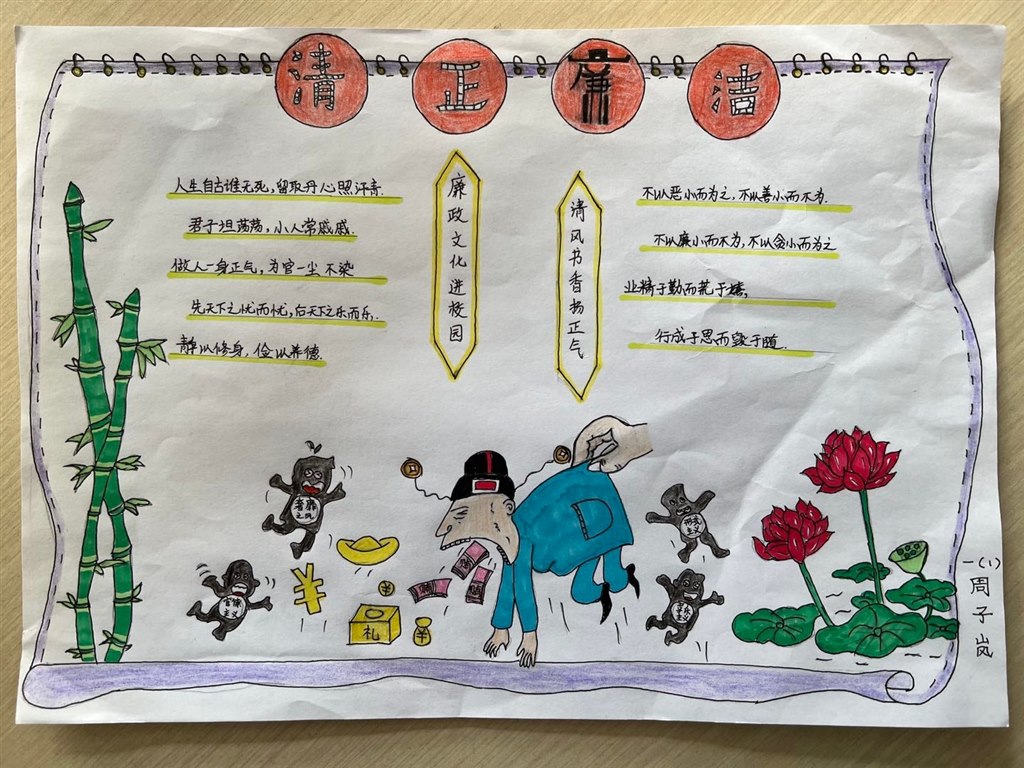 清正廉洁
人生自古谁无死,留取丹心照汗青.
君子坦荡荡,小人常戚戚.
做人一身正气,为官一尘不染
先天下之忧而忧,后天下之乐而乐.
静以修身,俭以养德.
廉政文化进校园
清风书香扬正气
不以恶小而为之,不以善小而不为.
不以廉小而不为,不以贪小而为之
业精于勤而荒于嬉,
行成于思而毁于随.
奢靡之风
官僚主义
形式主义
享乐主义
礼
¥
¥
¥
一(1)
周子岚